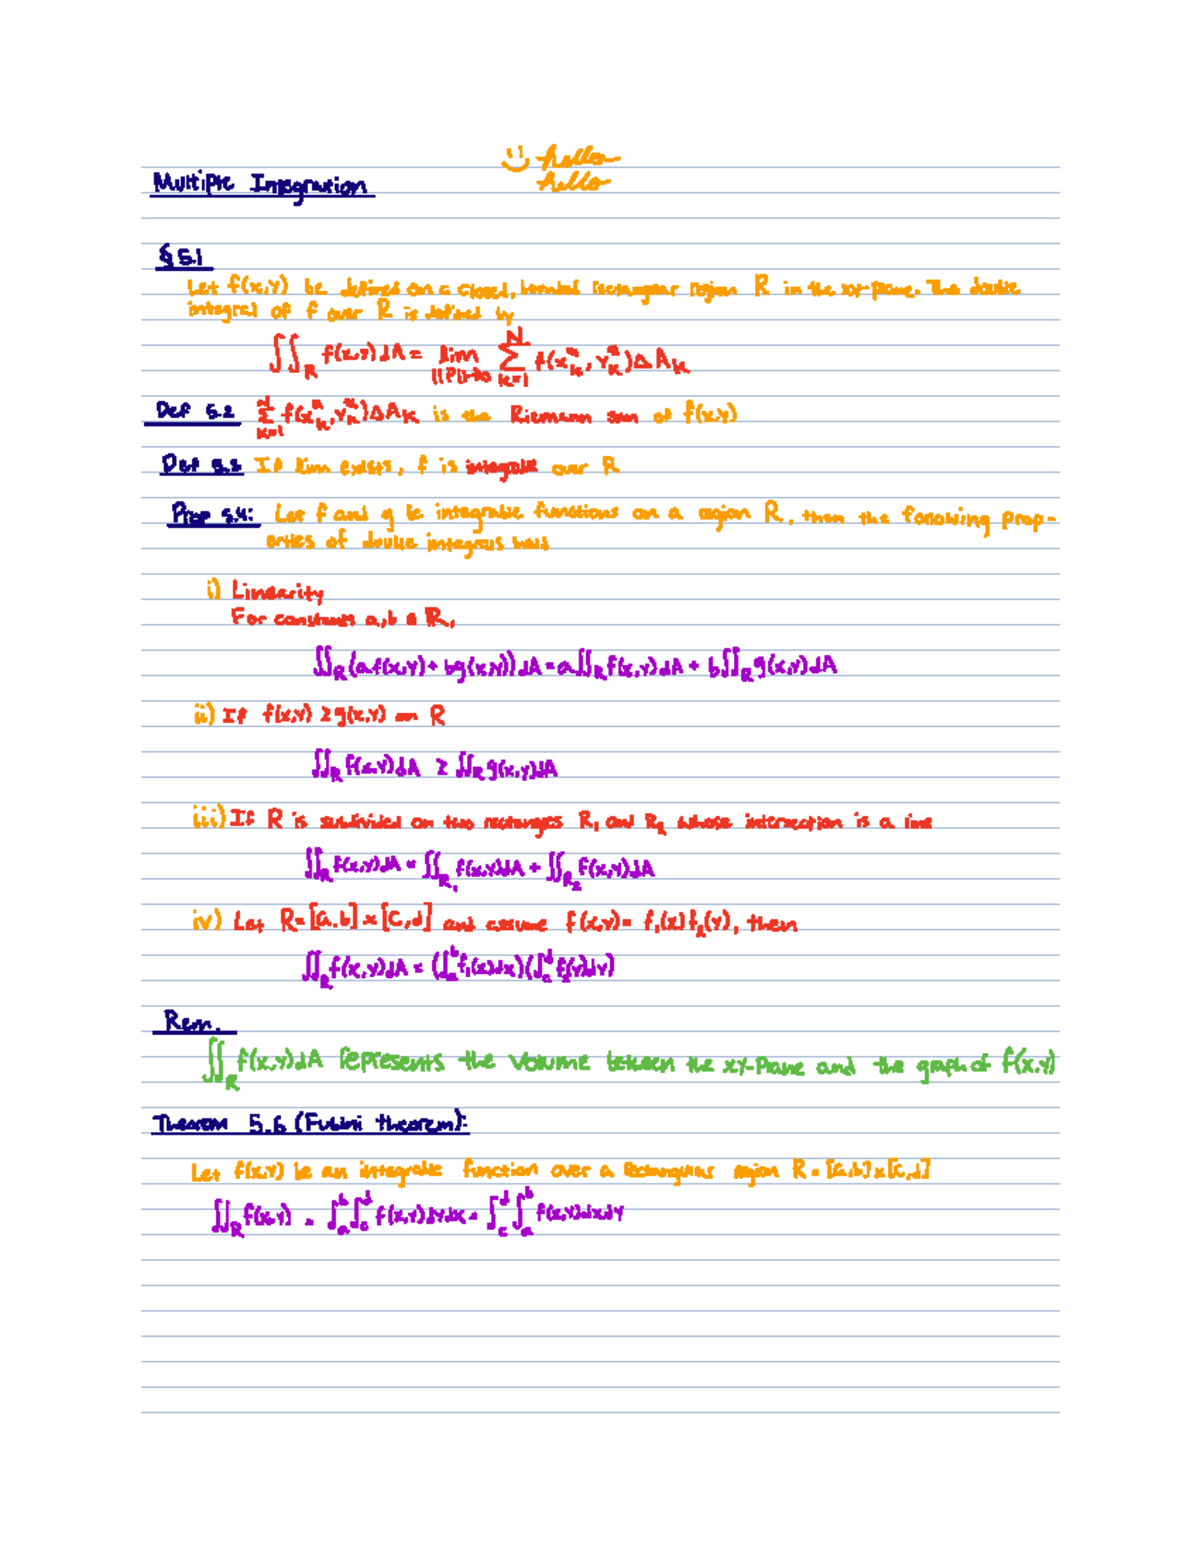 hello
hello
Multiple Integration
§ 5.1
Let f(x,y) be defined on a closed, bounded rectangular region R in the xy-plane. The double
integral of f over R is defined by
∬_R f(x,y)dA = lim_{||P||→0} Σ_{k=1}^{N} f(x_k^*, y_k^*)ΔA_k
Def 5.2 Σ_{k=1}^{N} f(x_k^*, y_k^*)ΔA_k is the Riemann sum of f(x,y)
Def 5.3 If lim exists, f is integrable over R
Prop 5.4: Let f and g be integrable functions on a region R, then the following prop-
erties of double integrals hold
i) Linearity
For constants a,b ∈ R,
∬_R (af(x,y) + bg(x,y))dA = a∬_R f(x,y)dA + b∬_R g(x,y)dA
ii) If f(x,y) ≥ g(x,y) on R
∬_R f(x,y)dA ≥ ∬_R g(x,y)dA
iii) If R is subdivided on two rectangles R₁ and R₂ whose intersection is a line
∬_R f(x,y)dA = ∬_{R₁} f(x,y)dA + ∬_{R₂} f(x,y)dA
iv) Let R=[a,b] × [c,d] and assume f(x,y) = f₁(x)f₂(y), then
∬_R f(x,y)dA = (∫_a^b f₁(x)dx)(∫_c^d f₂(y)dy)
Rem.
∬_R f(x,y)dA represents the volume between the xy-plane and the graph of f(x,y)
Theorem 5.6 (Fubini theorem):
Let f(x,y) be an integrable function over a rectangular region R = [a,b]×[c,d]
∬_R f(x,y) = ∫_a^b ∫_c^d f(x,y)dydx = ∫_c^d ∫_a^b f(x,y)dxdy